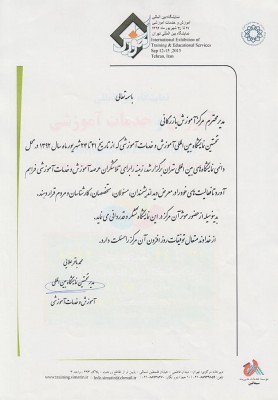 نمایشگاه بین المللی
آموزش و خدمات آموزشی
۲۱ تا ۲۴ شهریور ماه ۱۳۹۲
نمایشگاه بین المللی تهران
International Exhibition of
Training & Educational Services
Sep 12-15, 2013
Tehran, Iran
باسمه تعالی
مدیر محترم مرکز آموزش بازرگانی
نخستین نمایشگاه بین المللی آموزش و خدمات آموزشی که از تاریخ ۲۱ تا ۲۴ شهریور ماه سال ۱۳۹۲ در محل
دائمی نمایشگاه های بین المللی تهران برگزار شد، زمینه را برای تلاشگران عرصه آموزش و خدمات آموزشی فراهم
آورد تا فعالیت های خود را در معرض دید اندیشمندان، مسئولان، متخصصان، کارشناسان و مردم قرار دهند.
بدینوسیله از حضور موثر آن مرکز در این نمایشگاه تشکر و قدردانی می نماید.
از خداوند متعال توفیقات روز افزون آن مرکز را مسئلت دارد.
محمد باقر
مدیر نخستین نمایشگاه بین المللی
آموزش و خدمات آموزشی